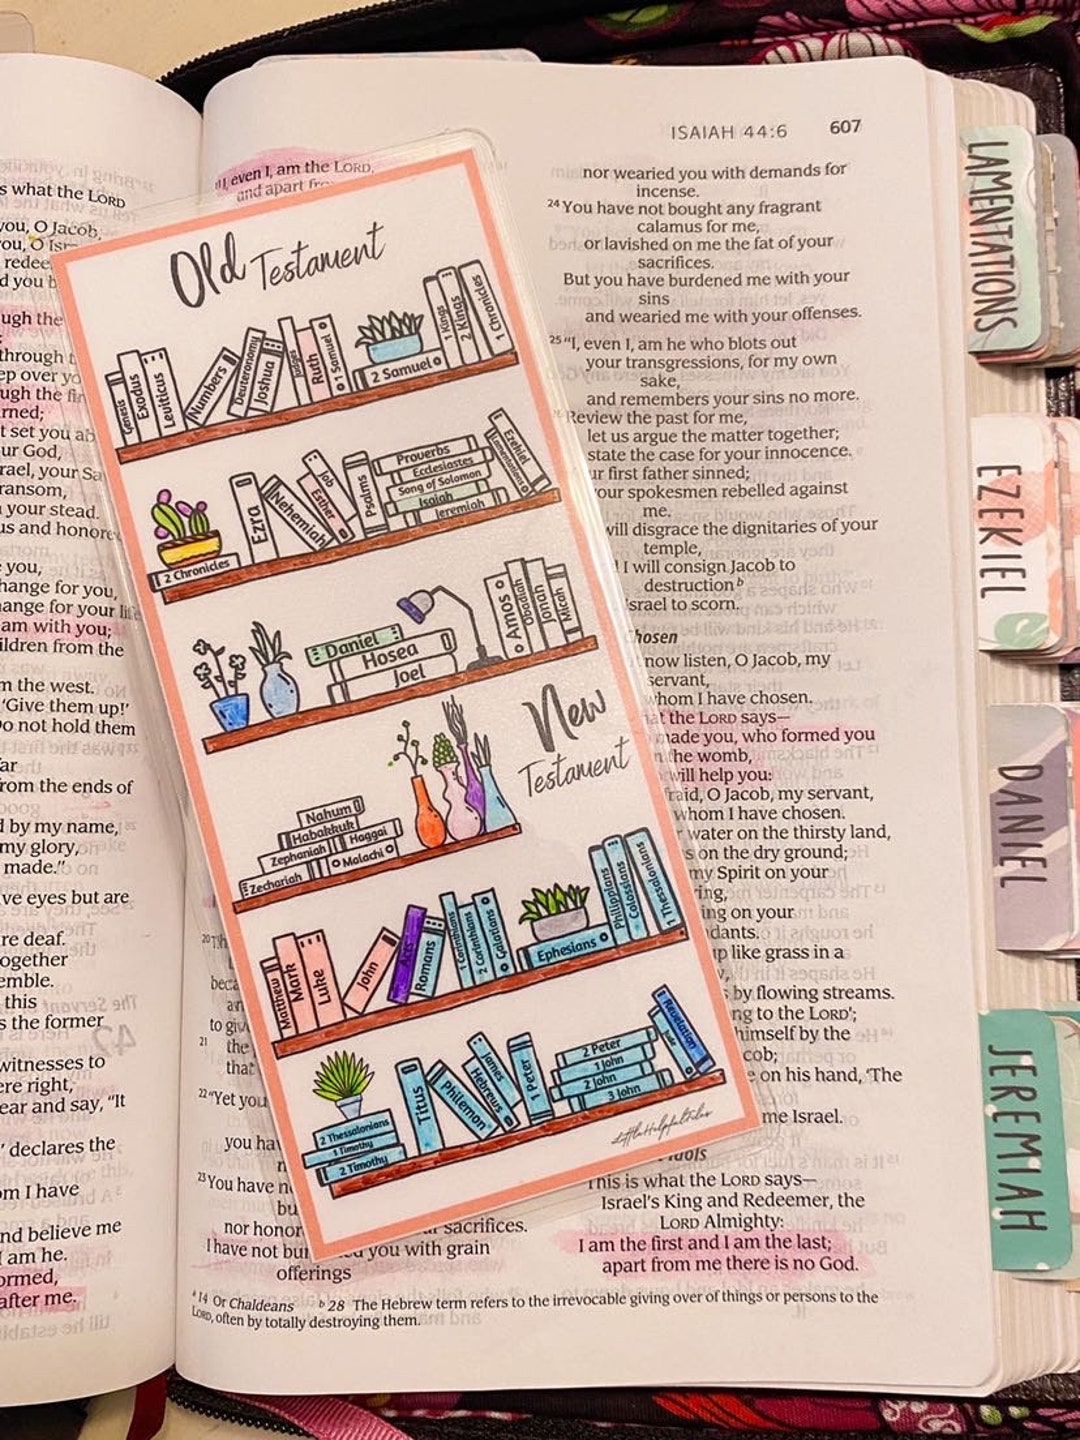 ISAIAH 44:6 607
s what the LORD
you, O Jacob,
redee
ugh the
through t
ep over yo
ugh the fir
rned;
t set you ab
ur God,
rael, your Sa
ransom,
your stead.
us and honore
you,
hange for you,
ange for your life
am with you;
ildren from the
m the west.
'Give them up!'
Do not hold them
far
rom the ends of
d by my name,
my glory,
made."
ve eyes but are
re deaf.
ogether
emble.
this
s the former
witnesses to
ere right,
ear and say, "It
declares the
om I have
nd believe me
I am he.
ormed,
after me.
I, even I, am the LORD,
and apart fr
Old Testament
Genesis
Exodus
Leviticus
Numbers
Deuteronomy
Joshua
Judges
Ruth
1 Samuel
2 Samuel
1 Kings
2 Kings
1 Chronicles
2 Chronicles
Ezra
Nehemiah
Esther
Job
Psalms
Proverbs
Ecclesiastes
Song of Solomon
Isaiah
Jeremiah
Lamentations
Ezekiel
Daniel
Hosea
Joel
Amos
Obadiah
Jonah
Micah
Nahum
Habakkuk
Zephaniah
Haggai
Zechariah
Malachi
New
Testament
Matthew
Mark
Luke
John
Acts
Romans
1 Corinthians
2 Corinthians
Galatians
Ephesians
Philippians
Colossians
1 Thessalonians
2 Thessalonians
1 Timothy
2 Timothy
Titus
Philemon
Hebrews
James
1 Peter
2 Peter
1 John
2 John
3 John
Jude
Revelation
LittleHelpfulTales
20
beca
an
to giv
21 the
that
22 "Yet you
you ha
23 You have n
bu
nor honor sacrifices.
I have not bur you with grain
offerings
nor wearied you with demands for
incense.
24 You have not bought any fragrant
calamus for me,
or lavished on me the fat of your
sacrifices.
But you have burdened me with your
sins
and wearied me with your offenses.
25 "I, even I, am he who blots out
your transgressions, for my own
sake,
and remembers your sins no more.
Review the past for me,
let us argue the matter together;
state the case for your innocence.
ur first father sinned;
our spokesmen rebelled against
me.
will disgrace the dignitaries of your
temple,
I will consign Jacob to
destruction b
Israel to scorn.
Chosen
now listen, O Jacob, my
servant,
whom I have chosen.
at the LORD says—
made you, who formed you
n the womb,
will help you:
raid, O Jacob, my servant,
whom I have chosen.
water on the thirsty land,
s on the dry ground;
my Spirit on your
ring,
ing on your
dants.
p like grass in a
by flowing streams.
ng to the LORD';
himself by the
cob;
e on his hand, 'The
me Israel.
Idols
This is what the LORD says—
Israel's King and Redeemer, the
LORD Almighty:
I am the first and I am the last;
apart from me there is no God.
a 14 Or Chaldeans b 28 The Hebrew term refers to the irrevocable giving over of things or persons to the
LORD, often by totally destroying them.
LAMENTATIONS
EZEKIEL
DANIEL
JEREMIAH